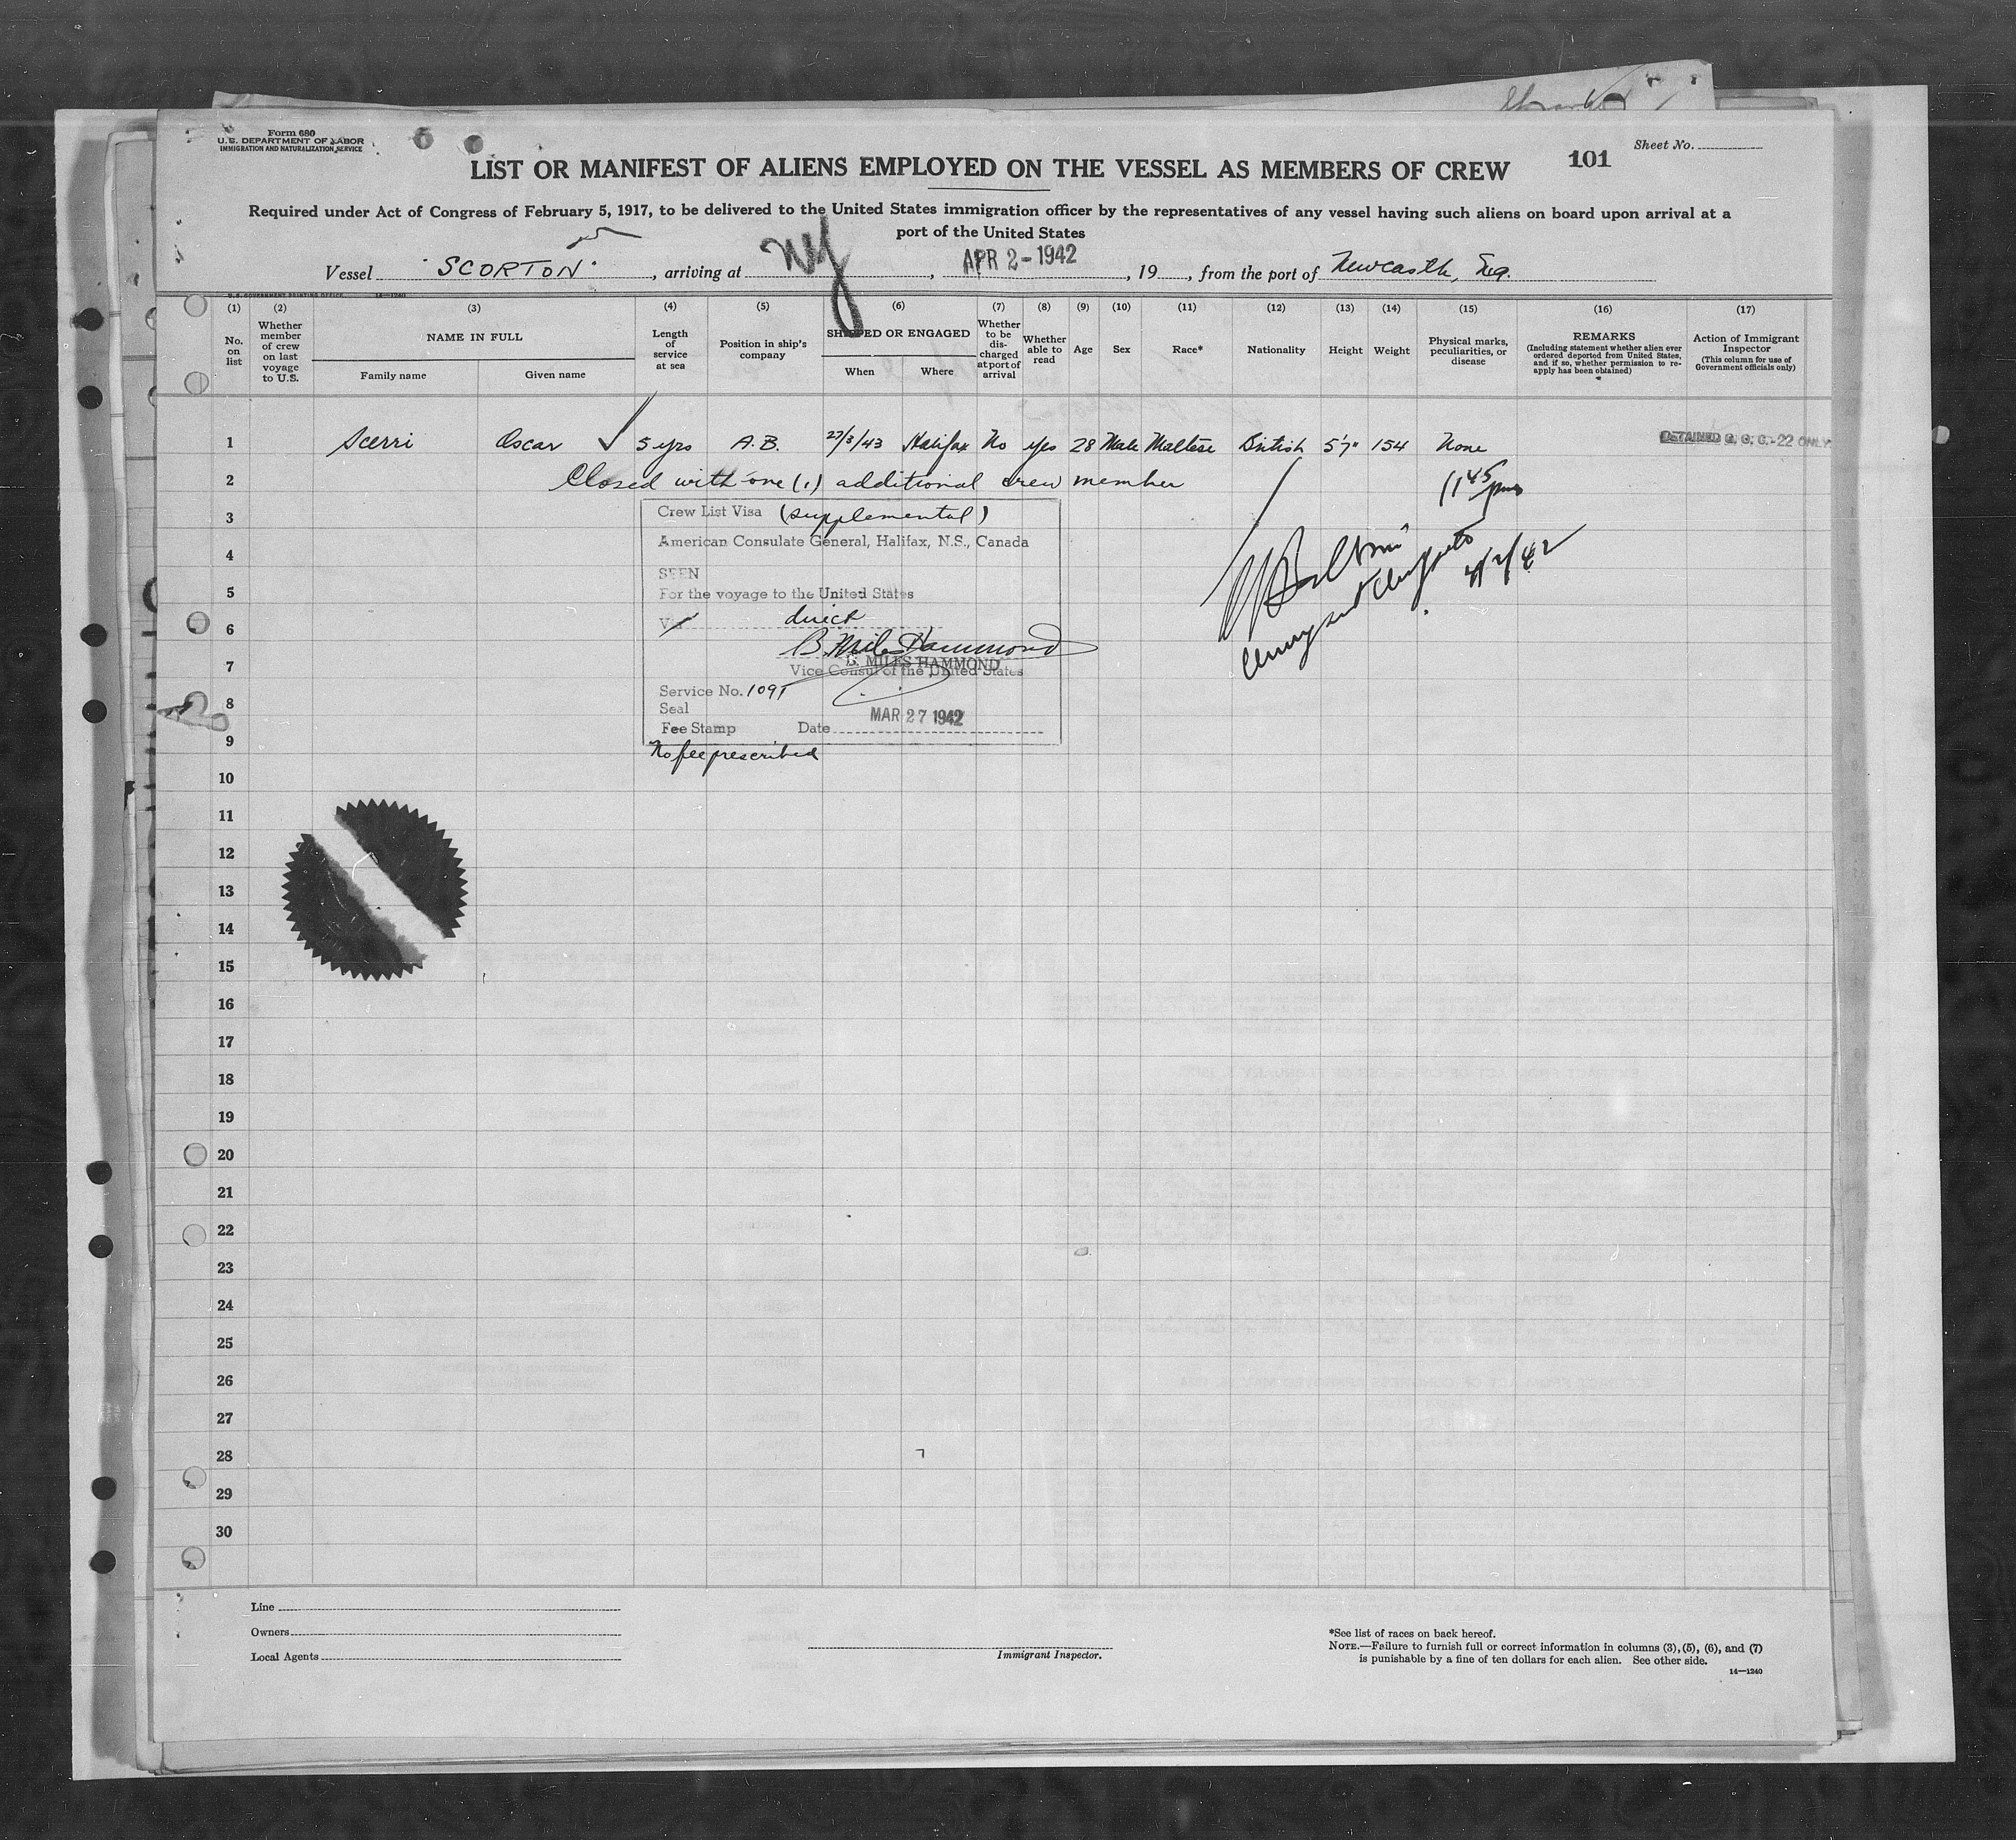 Form 680
U.S. DEPARTMENT OF LABOR
IMMIGRATION AND NATURALIZATION SERVICE
Sheet No.
101
LIST OR MANIFEST OF ALIENS EMPLOYED ON THE VESSEL AS MEMBERS OF CREW
Required under Act of Congress of February 5, 1917, to be delivered to the United States immigration officer by the representatives of any vessel having such aliens on board upon arrival at a
port of the United States
Vessel "SCORTON", arriving at NY, APR 2-1942, 19, from the port of Newcastle, Eng.
U.S. GOVERNMENT PRINTING OFFICE 14—1240
(1) (2) (3) (4) (5) (6) (7) (8) (9) (10) (11) (12) (13) (14) (15) (16) (17)
No. on list
Whether member of crew on last voyage to U.S.
NAME IN FULL
Family name Given name
Length of service at sea
Position in ship's company
SHIPPED OR ENGAGED
When Where
Whether to be discharged at port of arrival
Whether able to read
Age
Sex
Race*
Nationality
Height
Weight
Physical marks, peculiarities, or disease
REMARKS
(Including statement whether alien ever ordered deported from United States, and if so, whether permission to reapply has been obtained)
Action of Immigrant Inspector
(This column for use of Government officials only)
1 Scerri Oscar 5 yrs A.B. 27/3/43 Halifax No yes 28 Male Maltese British 5'7" 154 None
2 Closed with one (1) additional crew member
1145 pm
3
Crew List Visa (supplemental)
American Consulate General, Halifax, N.S., Canada
4
SEEN
5
For the voyage to the United States
4/2/42
6
Via direct
B. Miles Hammond
7
B. MILES HAMMOND
Vice Consul of the United States
Service No. 1091
8
Seal
MAR 27 1942
Fee Stamp Date
9
No fee prescribed
10
11
12
13
14
15
16
17
18
19
20
21
22
23
24
25
26
27
28
29
30
Line
Owners
Local Agents
Immigrant Inspector.
*See list of races on back hereof.
NOTE.—Failure to furnish full or correct information in columns (3), (5), (6), and (7)
is punishable by a fine of ten dollars for each alien. See other side.
14—1240